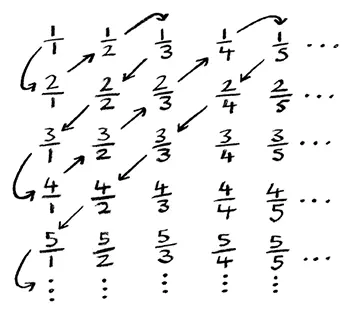 1/1 1/2 1/3 1/4 1/5 ...
2/1 2/2 2/3 2/4 2/5 ...
3/1 3/2 3/3 3/4 3/5 ...
4/1 4/2 4/3 4/4 4/5
5/1 5/2 5/3 5/4 5/5 ...
⋮ ⋮ ⋮ ⋮ ⋮